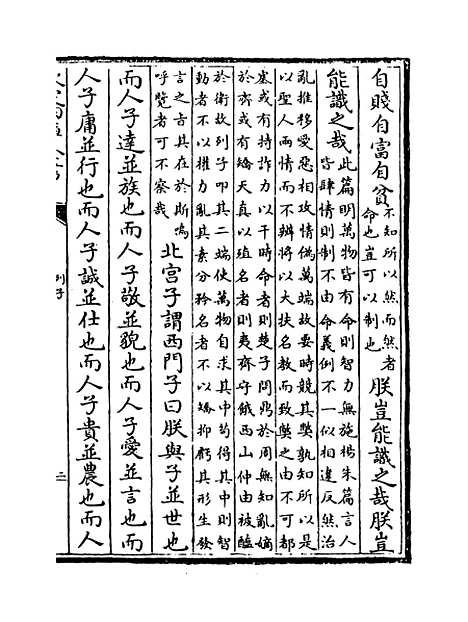 自賤自富自貧
不知所以然而然者
命也豈可以制也
朕豈能識之哉朕豈
能識之哉
此篇明萬物皆有命則智力無施楊朱篇言人
皆肆情則制不由命義例不一似相違反然治
亂推移愛惡相攻情偽萬端故要時競其獘孰知所以是
以聖人兩情而不辨將以大扶名教而致獘之由不可都
塞或有恃詐力以干時命者則楚子問鼎於周無知亂嫡
於齊或有矯天真以殖名者則夷齊守餓西山仲由被醢
於衛故列子叩其二端使萬物自求其中茍得其中則智
動者不以權力亂其素分矜名者不以矯抑虧其形生發
言之㫖其在於斯嗚
呼覽者可不察哉
北宮子謂西門子曰朕與子並世也
而人子達並族也而人子敬並貌也而人子愛並言也而
人子庸並行也而人子誠並仕也而人子貴並農也而人
列子